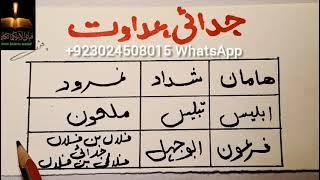 جدائی عداوت
+923024508015 WhatsApp
ھامان شداد نمرود
ابلیس تبلیس ملعون
فرعون ابوجہل فلاں بن فلاں جدائی فلاں بن فلاں